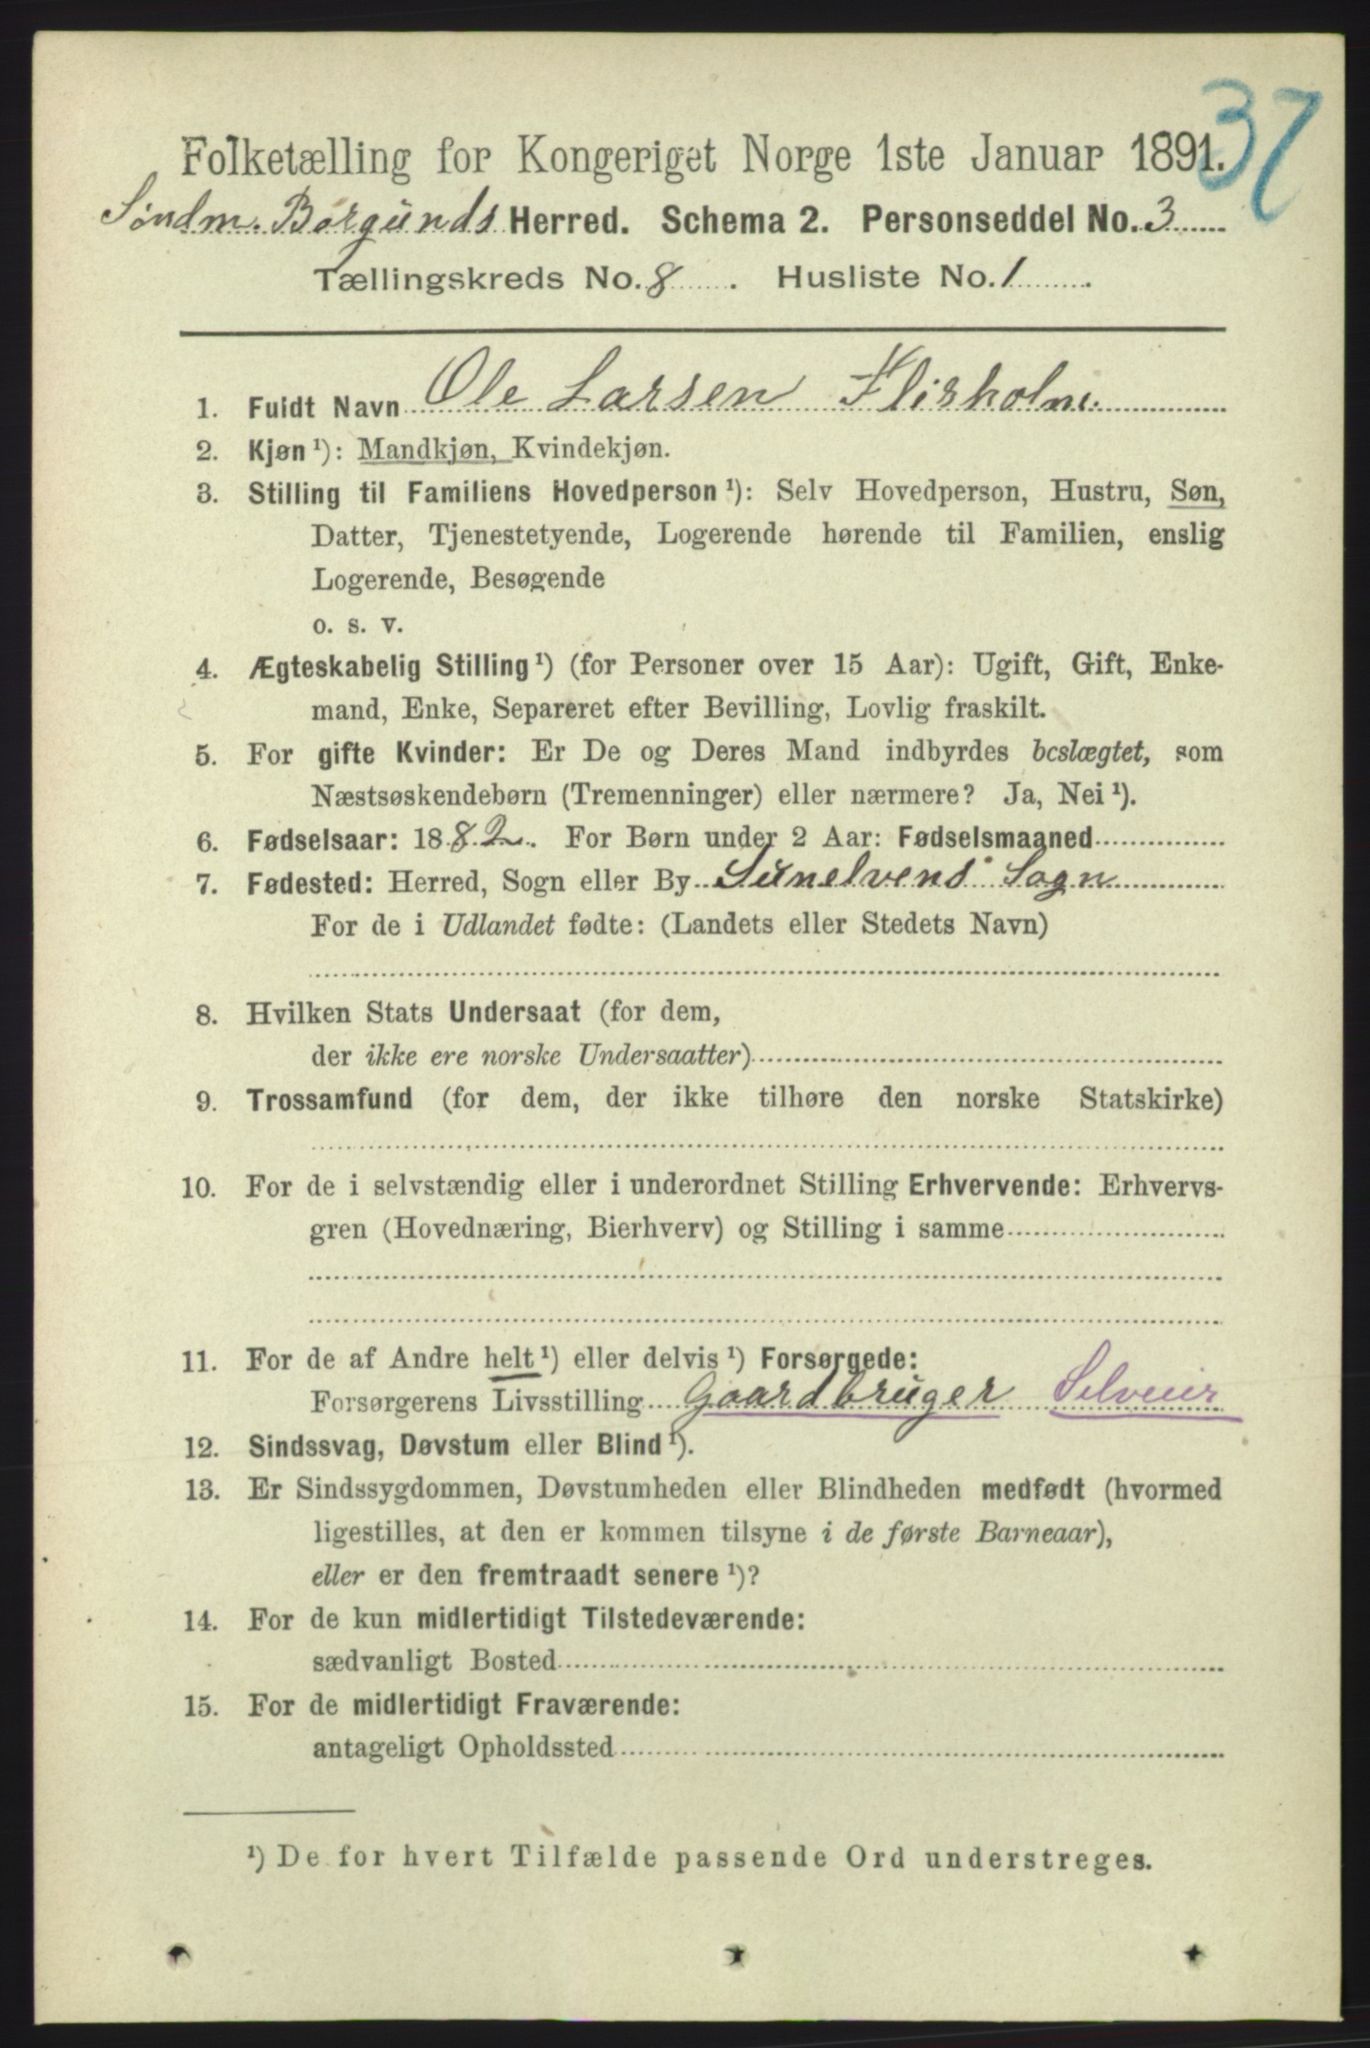 37
Folketælling for Kongeriget Norge 1ste Januar 1891.
Søndm. Borgunds Herred. Schema 2. Personseddel No. 3
Tællingskreds No. 8. Husliste No. 1.
1. Fuldt Navn Ole Larsen Flisholm.
2. Kjøn ¹): Mandkjøn, Kvindekjøn.
3. Stilling til Familiens Hovedperson ¹): Selv Hovedperson, Hustru, Søn,
Datter, Tjenestetyende, Logerende hørende til Familien, enslig
Logerende, Besøgende
o. s. v.
4. Ægteskabelig Stilling ¹) (for Personer over 15 Aar): Ugift, Gift, Enke-
mand, Enke, Separeret efter Bevilling, Lovlig fraskilt.
5. For gifte Kvinder: Er De og Deres Mand indbyrdes beslægtet, som
Næstsøskendebørn (Tremenninger) eller nærmere? Ja, Nei ¹).
6. Fødselsaar: 1882. For Børn under 2 Aar: Fødselsmaaned
7. Fødested: Herred, Sogn eller By Sunelvens Sogn
For de i Udlandet fødte: (Landets eller Stedets Navn)
8. Hvilken Stats Undersaat (for dem,
der ikke ere norske Undersaatter)
9. Trossamfund (for dem, der ikke tilhøre den norske Statskirke)
10. For de i selvstændig eller i underordnet Stilling Erhvervende: Erhvervs-
gren (Hovednæring, Bierhverv) og Stilling i samme
11. For de af Andre helt ¹) eller delvis ¹) Forsørgede:
Forsørgerens Livsstilling Gaardbruger Selveier
12. Sindssvag, Døvstum eller Blind ¹).
13. Er Sindssygdommen, Døvstumheden eller Blindheden medfødt (hvormed
ligestilles, at den er kommen tilsyne i de første Barneaar),
eller er den fremtraadt senere ¹)?
14. For de kun midlertidigt Tilstedeværende:
sædvanligt Bosted
15. For de midlertidigt Fraværende:
antageligt Opholdssted
¹) De for hvert Tilfælde passende Ord understreges.